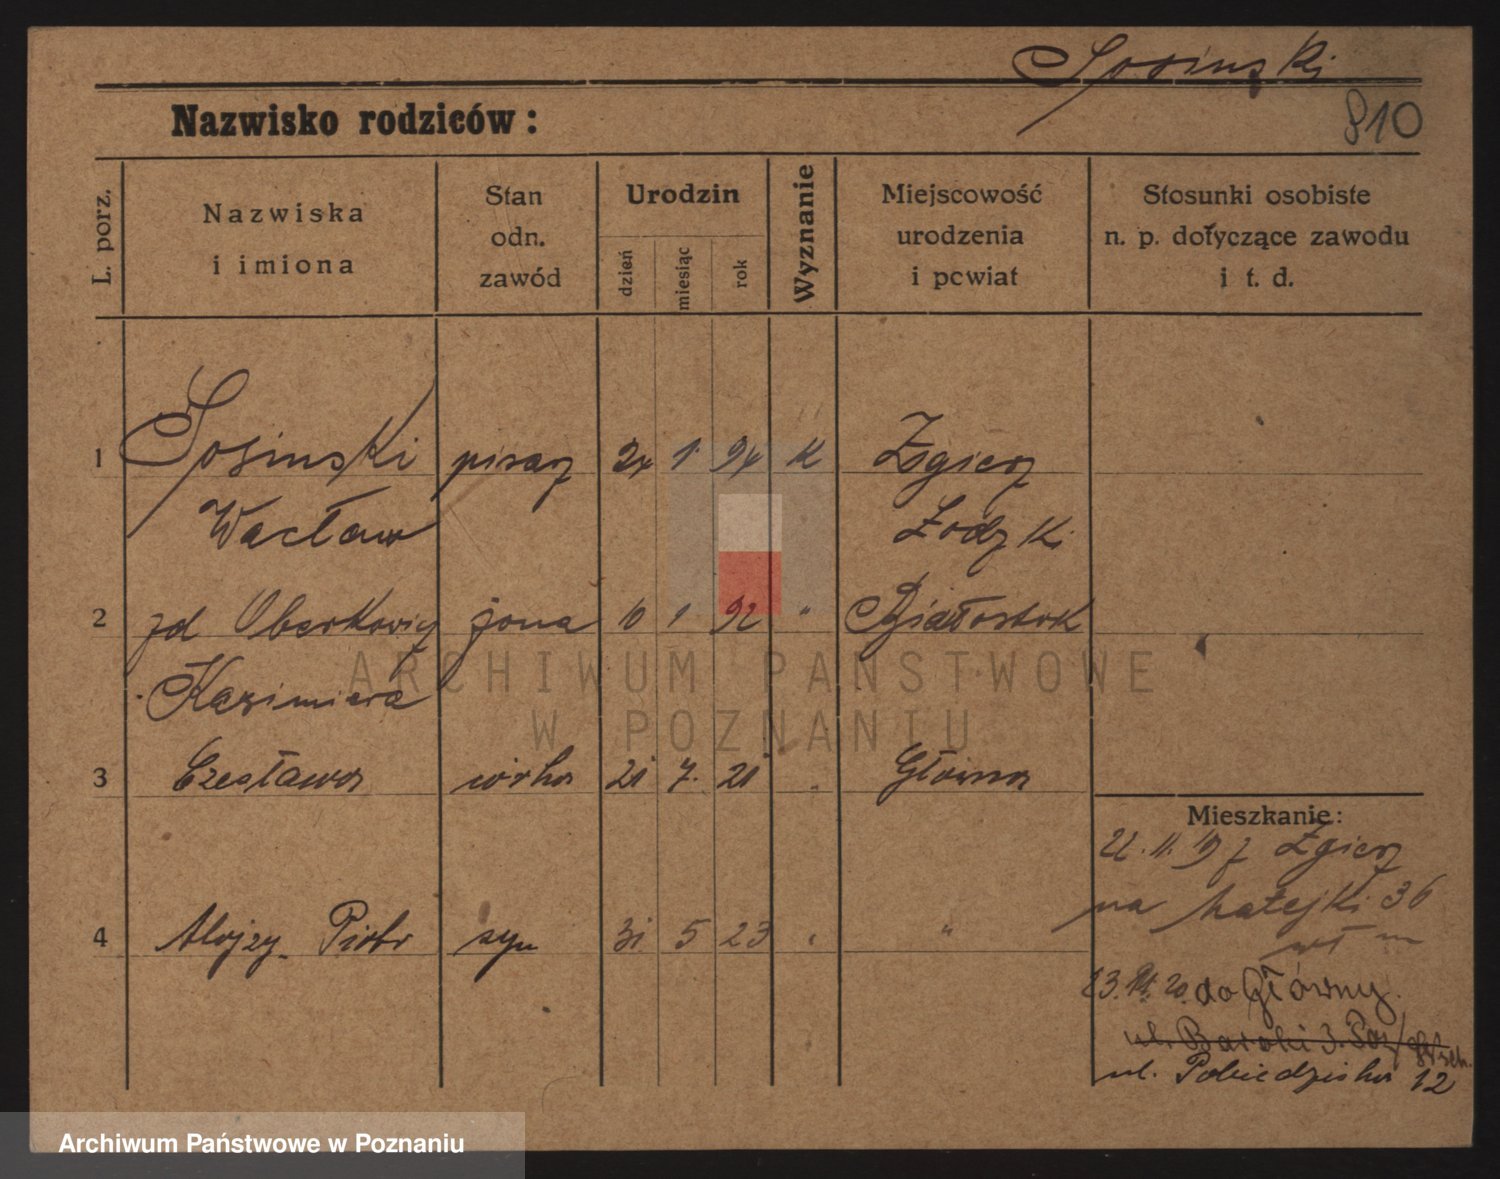 Sosinski
910
Nazwisko rodziców:
L. porz.
Nazwiska
i imiona
Stan
odn.
zawód
Urodzin
dzień
miesiąc
rok
Wyznanie
Miejscowość
urodzenia
i pcwiat
Stosunki osobiste
n. p. dotyczące zawodu
i t. d.
1 Sosinski pisarz 24 1 94 K Zgierz
Wacław Łodzki
2 zd Oberkowicz żona 10 1 92 " Białostok
Kazimiera
3 Czesława córka 21 7. 21 " Główna
Mieszkanie:
22. 11. 19 z Zgierz
na Matejki 36
4 Alojzy Piotr syn 31 5 23 " "
do Główny.
ul. Baraki 3.
ul. Pobiedziska 12
ARCHIWUM PAŃSTWOWE
W POZNANIU
Archiwum Państwowe w Poznaniu